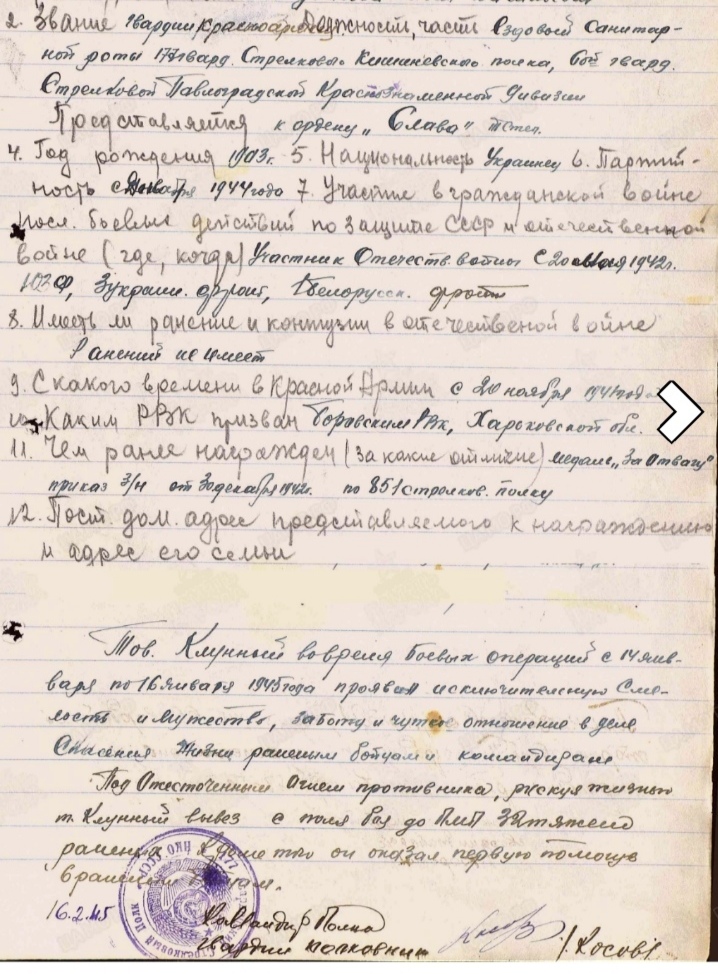 2. Звание Гвардии Красноарм Должность, часть Ездовой Санитар-
ной роты 177 гвард. Стрелкового Кишиневского полка, 60й гвард.
Стрелковой Павлоградской Краснознаменной Дивизии
Представляется к ордену „Слава" IIIстеп.
4. Год рождения 1903г. 5. Национальность Украинец 6. Партий-
ность с Января 1944 года 7. Участие в гражданской войне
посл. боевых действий по защите СССР и отечественной
войне (где, когда) Участник Отечеств. войны С 20 мая 1942г.
ЮЗФ, 3 Украин. фронт, 1 Белорусск. фронт
8. Имеет ли ранение и контузии в отечественой войне
Ранений не имеет
9. С какого времени в Красной Армии с 20 ноября 1941 года
10. Каким РВК призван Боровским Рвк, Харьковской обл.
11. Чем ранее награжден (за какие отличие) медаль „За Отвагу"
приказ З/Н от 30 декабря 1942г. по 851 стрелков. полку
12. Пост. дом. адрес представляемого к награждению
и адрес его семьи
Тов. Клунный вовремя боевых операций с 14 янв-
варя по 16 января 1945 года проявил исключительную Сме-
лость и мужество, заботу и чуткое отношение в деле
Спасения жизни раненым бойцам и командирам
Под Ожесточенным Огнем противника, рискуя жизнью
т. Клунный вывез с поля боя до ПМП 32 тяжело
раненых Кроме того он оказал первую помощь
раненым
16.2.45 Командир Полка
Гвардии полковник /Косов/
Стрелковый Полк
НКО СССР